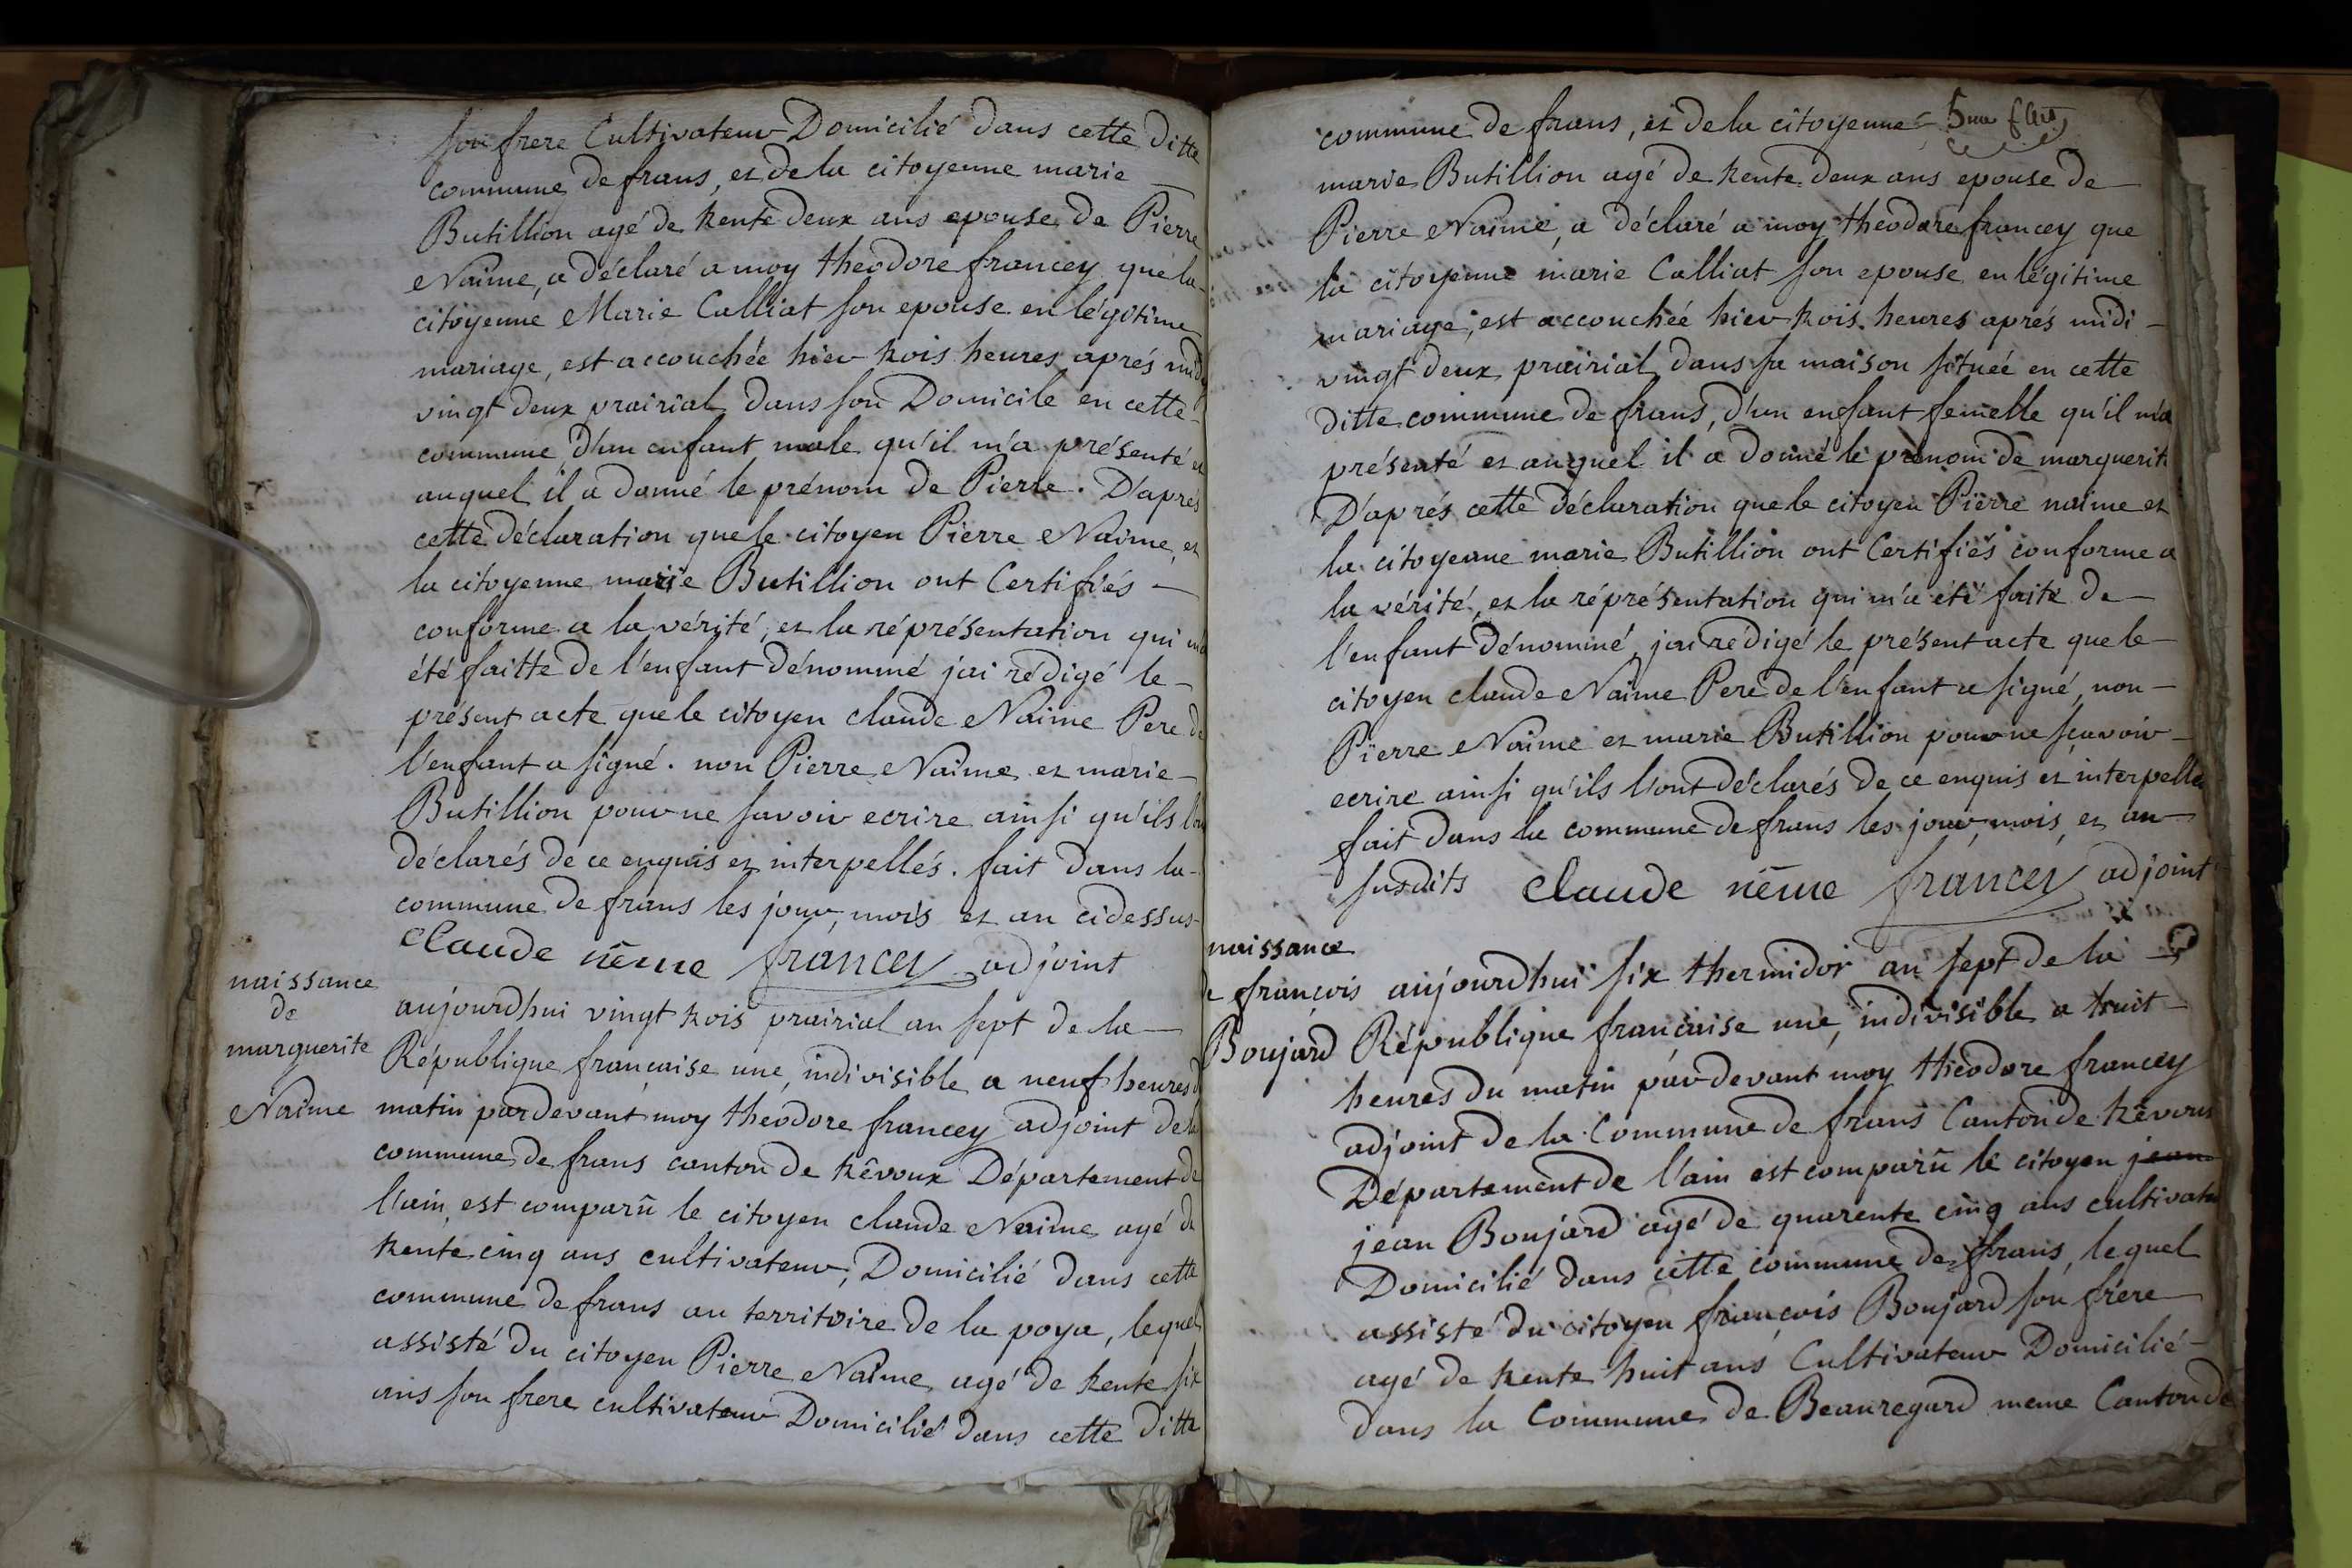 son frere Cultivateur Domicilié dans cette ditte
commune de frans, et de la citoyenne marie
Butillion agé de trente deux ans epouse de Pierre
Naime, a déclaré a moy theodore francey que la
citoyenne Marie Calliat son epouse en légitime
mariage, est accouchée hier trois heures aprés midy
vingt deux prairial dans son Domicile en cette
commune d'un enfant male qu'il m'a présenté et
auquel il a donné le prénom de Pierre. D'aprés
cette déclaration que le citoyen Pierre Naime et
la citoyenne marie Butillion ont Certifiés
conforme a la vérité, et la réprésentation qui m'a
été faitte de l'enfant dénommé j'ai rédigé le
présent acte que le citoyen claude Naime Pere de
l'enfant a signé. non Pierre Naime et marie
Butillion pour ne savoir ecrire ainsi qu'ils l'ont
déclarés de ce enquis et interpellés. fait dans la
commune de frans les jour, mois et an cidessus
Claude nême francey adjoint
naissance
de
marguerite
Naime
aujourdhui vingt trois prairial an sept de la
République française une, indivisible a neuf heures du
matin pardevant moy theodore francey adjoint de la
commune de frans canton de trêvoux Département de
l'ain, est comparu le citoyen claude Naime agé de
trente cinq ans cultivateur, Domicilié dans cette
commune de frans au territoire de la poya, lequel
assisté du citoyen Pierre Naime agé de trente six
ans son frere cultivateur Domicilié dans cette ditte
commune de frans, et de la citoyenne
marie Butillion agé de trente deux ans epouse de
Pierre Naime, a déclaré a moy théodore francey que
la citoyenne marie Calliat son epouse en légitime
mariage, est accouchée hier trois heures aprés midi
vingt deux prairial dans sa maison située en cette
ditte commune de frans, d'un enfant femelle qu'il m'a
présenté et auquel il a donné le prénom de marguerite
D'aprés cette déclaration que le citoyen Pierre naime et
la citoyenne marie Butillion ont Certifiés conforme a
la vérité, et la réprésentation qui m'a été faite de
l'enfant dénommé, j'ai rédigé le présent acte que le
citoyen claude Naime Pere de l'enfant a signé, non
Pierre Naime et marie Butillion pour ne sçavoir
ecrire ainsi qu'ils l'ont déclarés de ce enquis et interpellés
fait dans la commune de frans les jour, mois, et an
susdits Claude nême francey adjoint
naissance
de françois
Boujard
aujourdhui six thermidor an sept de la
République française une, indivisible a huit
heures du matin pardevant moy théodore francey
adjoint de la Commune de frans Canton de trêvoux
Département de l'ain est comparu le citoyen jean
jean Boujard agé de quarente cinq ans cultivateur
Domicilié dans cette commune de frans, lequel
assisté du citoyen françois Boujard son frére
agé de trente huit ans Cultivateur Domicilié
dans la Commune de Beauregard meme Canton de